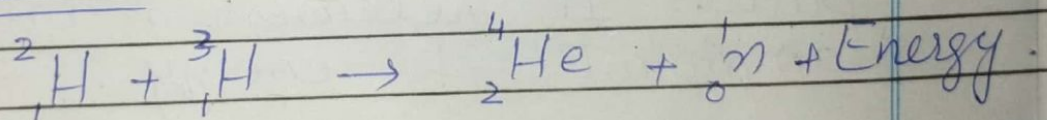 ²₁H + ³₁H → ⁴₂He + ¹₀n + Energy.